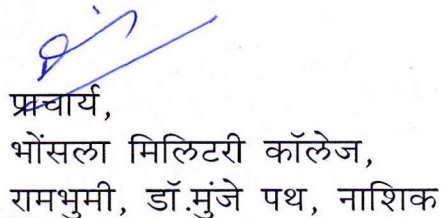 प्राचार्य,
भोंसला मिलिटरी कॉलेज,
रामभुमी, डॉ.मुंजे पथ, नाशिक